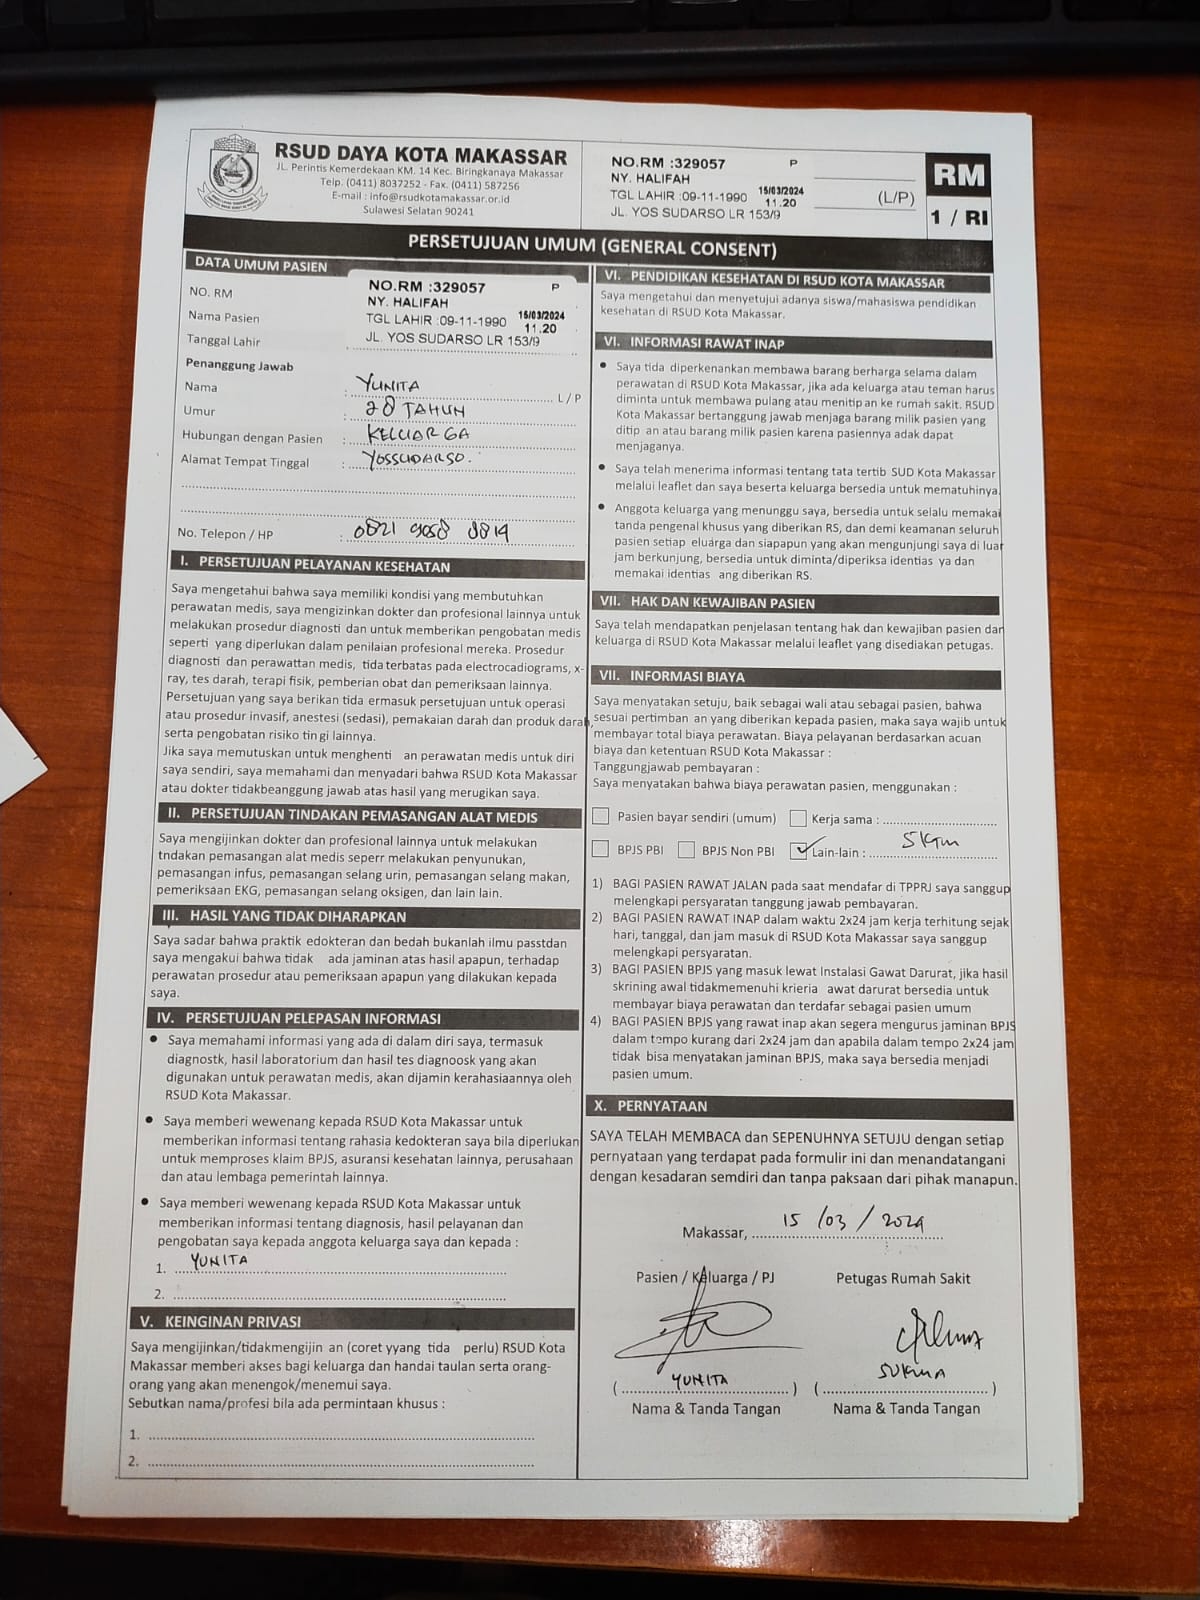 RSUD DAYA KOTA MAKASSAR
JL. Perintis Kemerdekaan KM. 14 Kec. Biringkanaya Makassar
Telp. (0411) 8037252 - Fax. (0411) 587256
E-mail : info@rsudkotamakassar.or.id
Sulawesi Selatan 90241
NO.RM :329057 P
NY. HALIFAH
TGL LAHIR :09-11-1990 15/03/2024 11.20
JL. YOS SUDARSO LR 153/9
(L/P)
RM
1 / RI
PERSETUJUAN UMUM (GENERAL CONSENT)
DATA UMUM PASIEN
NO. RM
Nama Pasien
Tanggal Lahir
NO.RM :329057 P
NY. HALIFAH
TGL LAHIR :09-11-1990 15/03/2024 11.20
JL. YOS SUDARSO LR 153/9
Penanggung Jawab
Nama : YUNITA L / P
Umur : 28 TAHUN
Hubungan dengan Pasien : KELUARGA
Alamat Tempat Tinggal : YOSSUDARSO.
No. Telepon / HP : 0821 9058 8819
I. PERSETUJUAN PELAYANAN KESEHATAN
Saya mengetahui bahwa saya memiliki kondisi yang membutuhkan
perawatan medis, saya mengizinkan dokter dan profesional lainnya untuk
melakukan prosedur diagnosti dan untuk memberikan pengobatan medis
seperti yang diperlukan dalam penilaian profesional mereka. Prosedur
diagnosti dan perawattan medis, tida terbatas pada electrocadiograms, x-
ray, tes darah, terapi fisik, pemberian obat dan pemeriksaan lainnya.
Persetujuan yang saya berikan tida ermasuk persetujuan untuk operasi
atau prosedur invasif, anestesi (sedasi), pemakaian darah dan produk darah,
serta pengobatan risiko tingi lainnya.
Jika saya memutuskan untuk menghenti an perawatan medis untuk diri
saya sendiri, saya memahami dan menyadari bahwa RSUD Kota Makassar
atau dokter tidakbeanggung jawab atas hasil yang merugikan saya.
II. PERSETUJUAN TINDAKAN PEMASANGAN ALAT MEDIS
Saya mengijinkan dokter dan profesional lainnya untuk melakukan
tndakan pemasangan alat medis seperr melakukan penyunukan,
pemasangan infus, pemasangan selang urin, pemasangan selang makan,
pemeriksaan EKG, pemasangan selang oksigen, dan lain lain.
III. HASIL YANG TIDAK DIHARAPKAN
Saya sadar bahwa praktik edokteran dan bedah bukanlah ilmu passtdan
saya mengakui bahwa tidak ada jaminan atas hasil apapun, terhadap
perawatan prosedur atau pemeriksaan apapun yang dilakukan kepada
saya.
IV. PERSETUJUAN PELEPASAN INFORMASI
• Saya memahami informasi yang ada di dalam diri saya, termasuk
diagnostk, hasil laboratorium dan hasil tes diagnoosk yang akan
digunakan untuk perawatan medis, akan dijamin kerahasiaannya oleh
RSUD Kota Makassar.
• Saya memberi wewenang kepada RSUD Kota Makassar untuk
memberikan informasi tentang rahasia kedokteran saya bila diperlukan
untuk memproses klaim BPJS, asuransi kesehatan lainnya, perusahaan
dan atau lembaga pemerintah lainnya.
• Saya memberi wewenang kepada RSUD Kota Makassar untuk
memberikan informasi tentang diagnosis, hasil pelayanan dan
pengobatan saya kepada anggota keluarga saya dan kepada :
1. YUNITA
2.
V. KEINGINAN PRIVASI
Saya mengijinkan/tidakmengijin an (coret yyang tida perlu) RSUD Kota
Makassar memberi akses bagi keluarga dan handai taulan serta orang-
orang yang akan menengok/menemui saya.
Sebutkan nama/profesi bila ada permintaan khusus :
1.
2.
VI. PENDIDIKAN KESEHATAN DI RSUD KOTA MAKASSAR
Saya mengetahui dan menyetujui adanya siswa/mahasiswa pendidikan
kesehatan di RSUD Kota Makassar.
VI. INFORMASI RAWAT INAP
• Saya tida diperkenankan membawa barang berharga selama dalam
perawatan di RSUD Kota Makassar, jika ada keluarga atau teman harus
diminta untuk membawa pulang atau menitip an ke rumah sakit. RSUD
Kota Makassar bertanggung jawab menjaga barang milik pasien yang
ditip an atau barang milik pasien karena pasiennya adak dapat
menjaganya.
• Saya telah menerima informasi tentang tata tertib SUD Kota Makassar
melalui leaflet dan saya beserta keluarga bersedia untuk mematuhinya.
• Anggota keluarga yang menunggu saya, bersedia untuk selalu memakai
tanda pengenal khusus yang diberikan RS, dan demi keamanan seluruh
pasien setiap eluárga dan siapapun yang akan mengunjungi saya di luar
jam berkunjung, bersedia untuk diminta/diperiksa identias ya dan
memakai identias ang diberikan RS.
VII. HAK DAN KEWAJIBAN PASIEN
Saya telah mendapatkan penjelasan tentang hak dan kewajiban pasien dan
keluarga di RSUD Kota Makassar melalui leaflet yang disediakan petugas.
VII. INFORMASI BIAYA
Saya menyatakan setuju, baik sebagai wali atau sebagai pasien, bahwa
sesuai pertimban an yang diberikan kepada pasien, maka saya wajib untuk
membayar total biaya perawatan. Biaya pelayanan berdasarkan acuan
biaya dan ketentuan RSUD Kota Makassar :
Tanggungjawab pembayaran :
Saya menyatakan bahwa biaya perawatan pasien, menggunakan :
Pasien bayar sendiri (umum) Kerja sama :
BPJS PBI BPJS Non PBI ✓ Lain-lain : SKTM
1) BAGI PASIEN RAWAT JALAN pada saat mendafar di TPPRJ saya sanggup
melengkapi persyaratan tanggung jawab pembayaran.
2) BAGI PASIEN RAWAT INAP dalam waktu 2x24 jam kerja terhitung sejak
hari, tanggal, dan jam masuk di RSUD Kota Makassar saya sanggup
melengkapi persyaratan.
3) BAGI PASIEN BPJS yang masuk lewat Instalasi Gawat Darurat, jika hasil
skrining awal tidakmemenuhi krieria awat darurat bersedia untuk
membayar biaya perawatan dan terdafar sebagai pasien umum
4) BAGI PASIEN BPJS yang rawat inap akan segera mengurus jaminan BPJS
dalam tempo kurang dari 2x24 jam dan apabila dalam tempo 2x24 jam
tidak bisa menyatakan jaminan BPJS, maka saya bersedia menjadi
pasien umum.
X. PERNYATAAN
SAYA TELAH MEMBACA dan SEPENUHNYA SETUJU dengan setiap
pernyataan yang terdapat pada formulir ini dan menandatangani
dengan kesadaran semdiri dan tanpa paksaan dari pihak manapun.
Makassar, 15 / 03 / 2024
Pasien / Keluarga / PJ Petugas Rumah Sakit
( YUNITA ) ( SUKMA )
Nama & Tanda Tangan Nama & Tanda Tangan